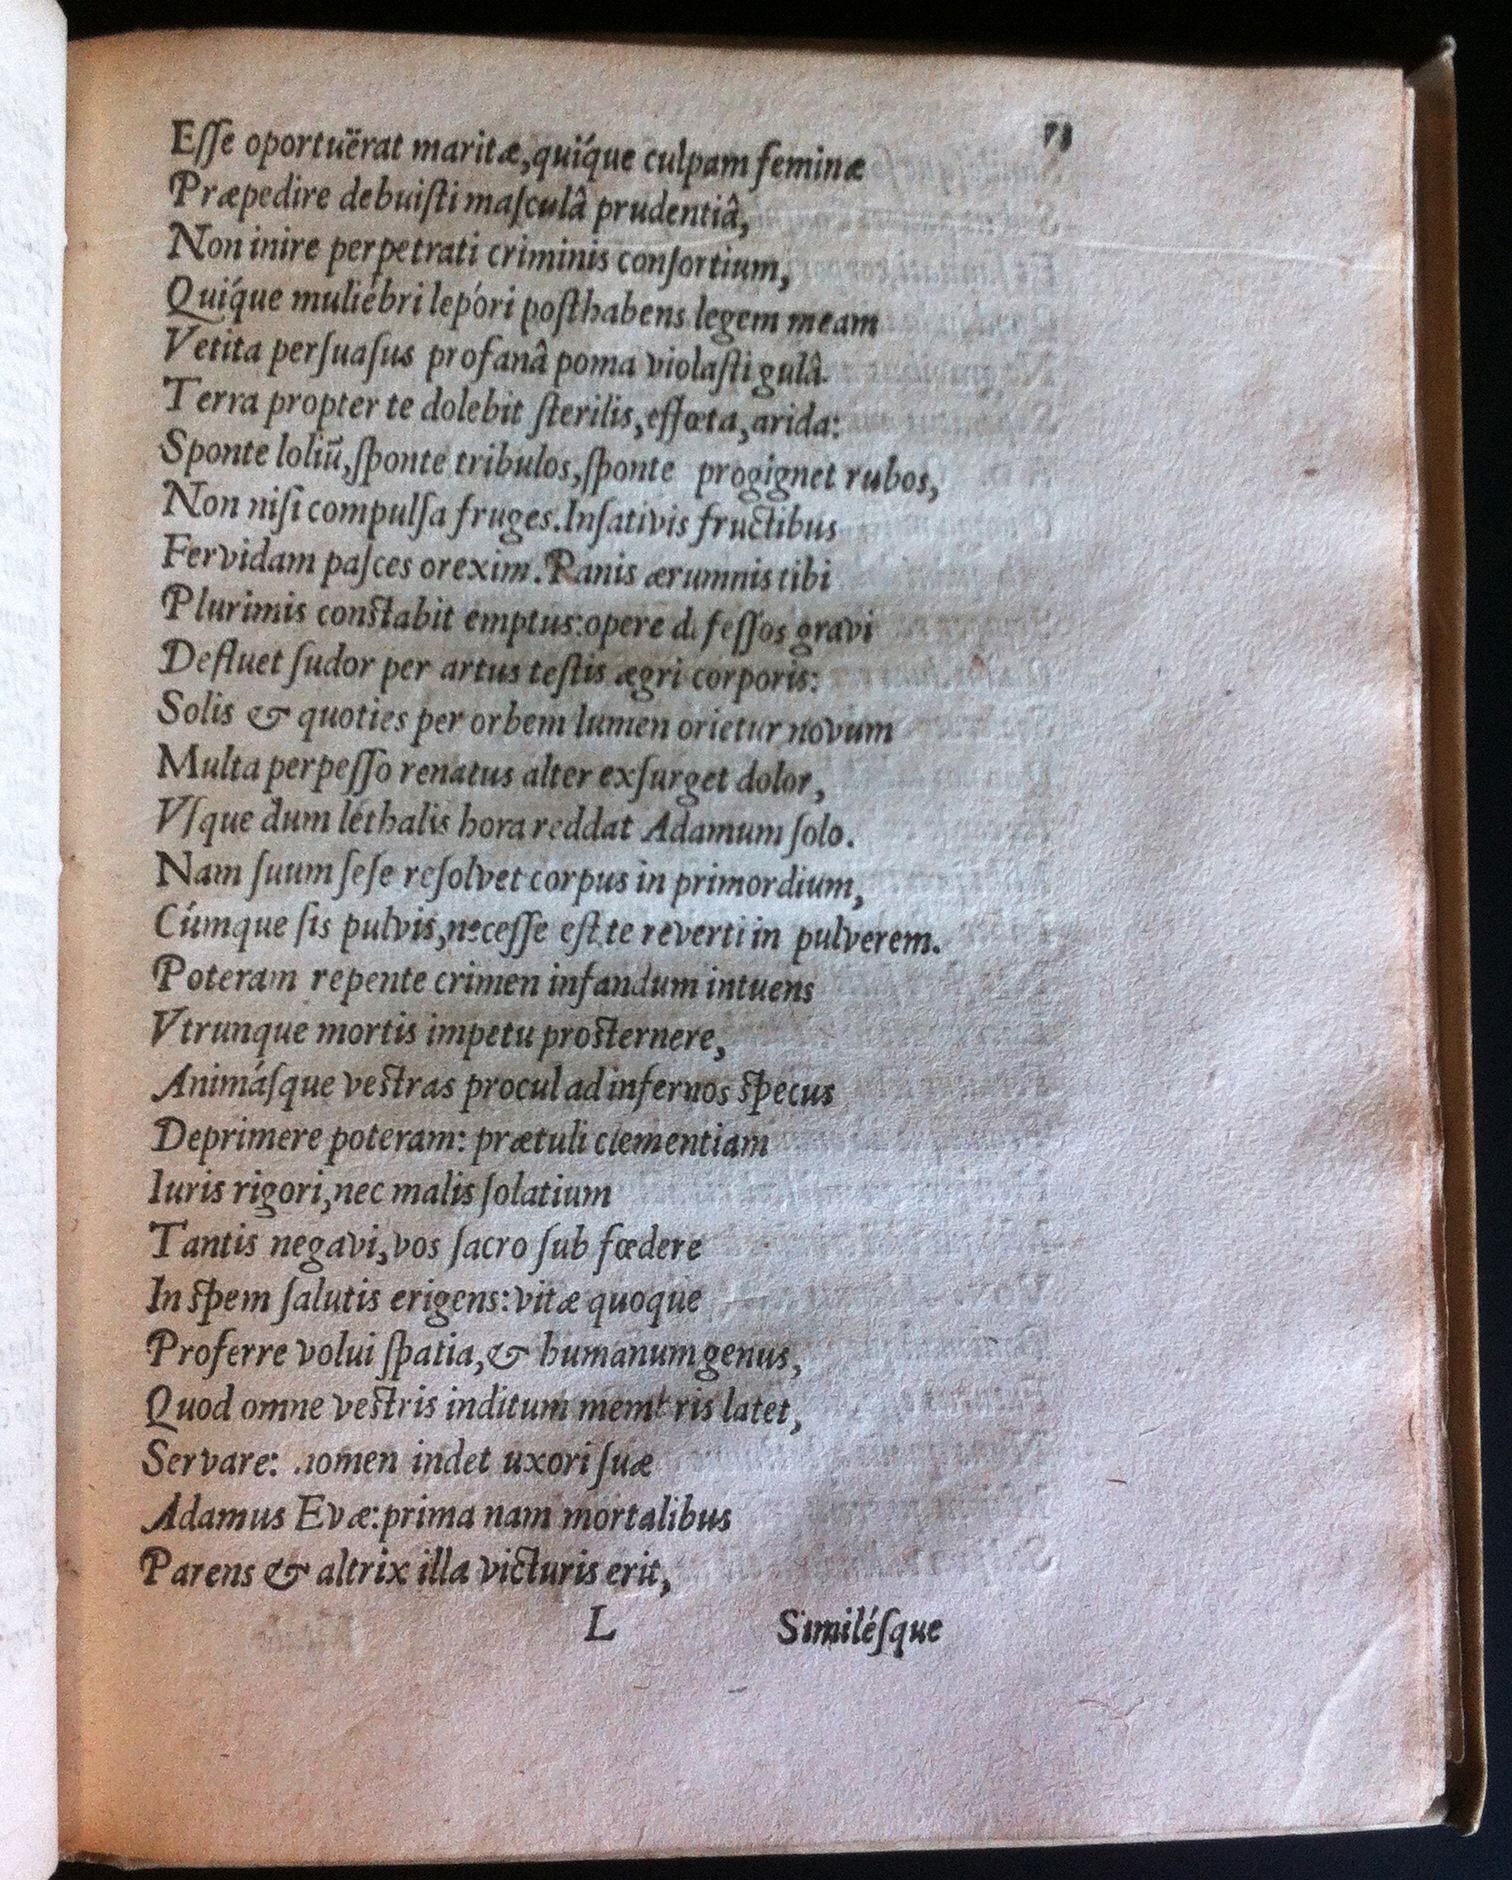 73
Eſſe oportuërat maritæ, quíque culpam feminæ
Præpedire debuiſti maſculâ prudentiâ,
Non inire perpetrati criminis conſortium,
Quíque muliébri lepóri poſthabens legem meam
Vetita perſuaſus profanâ poma violaſti gulâ.
Terra propter te dolebit ſterilis, effœta, arida:
Sponte loliũ, ſponte tribulos, ſponte progignet rubos,
Non niſi compulſa fruges. Inſativis fructibus
Fervidam paſces orexim. Panis ærumnis tibi
Plurimis conſtabit emptus: opere defeſſos gravi
Defluet ſudor per artus teſtis ægri corporis:
Solis & quoties per orbem lumen orietur novum
Multa perpeſſo renatus alter exſurget dolor,
Vſque dum léthalis hora reddat Adamum ſolo.
Nam ſuum ſeſe reſolvet corpus in primordium,
Cúmque ſis pulvis, neceſſe eſt te reverti in pulverem.
Poteram repente crimen infandum intuens
Vtrunque mortis impetu proſternere,
Animáſque veſtras procul ad infernos ſpecus
Deprimere poteram: prætuli clementiam
Iuris rigori, nec malis ſolatium
Tantis negavi, vos ſacro ſub fœdere
In ſpem ſalutis erigens: vitæ quoque
Proferre volui ſpatia, & humanum genus,
Quod omne veſtris inditum membris latet,
Servare: nomen indet uxori ſuæ
Adamus Evæ: prima nam mortalibus
Parens & altrix illa victuris erit,
L Similéſque